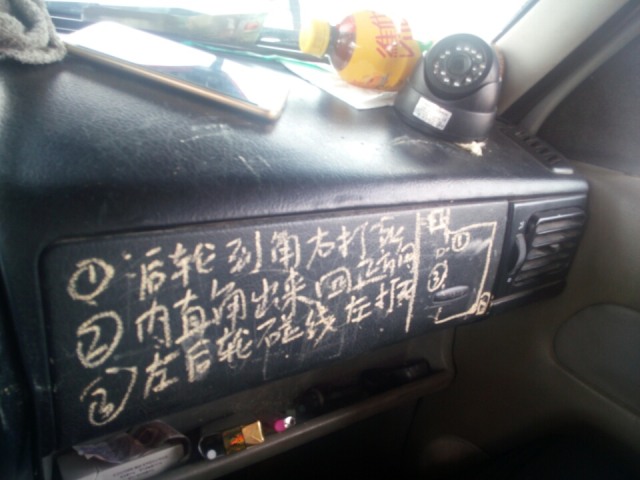 ① 后轮到角右打死
② 内直角出来回正方向
③ 左后轮砬线左打死
①
③
②